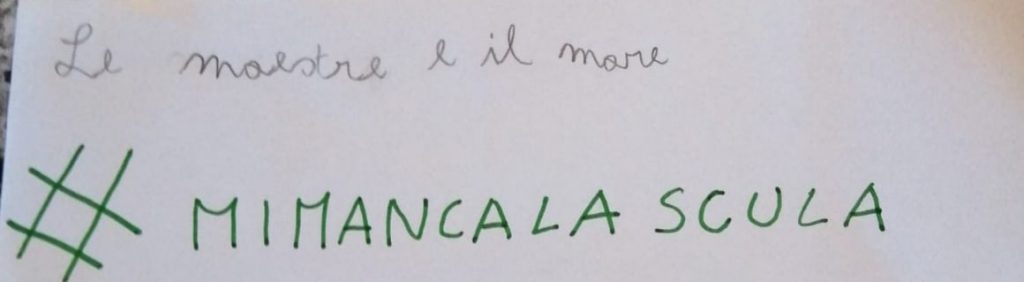 Le maestre e il mare
# MIMANCALA SCULA